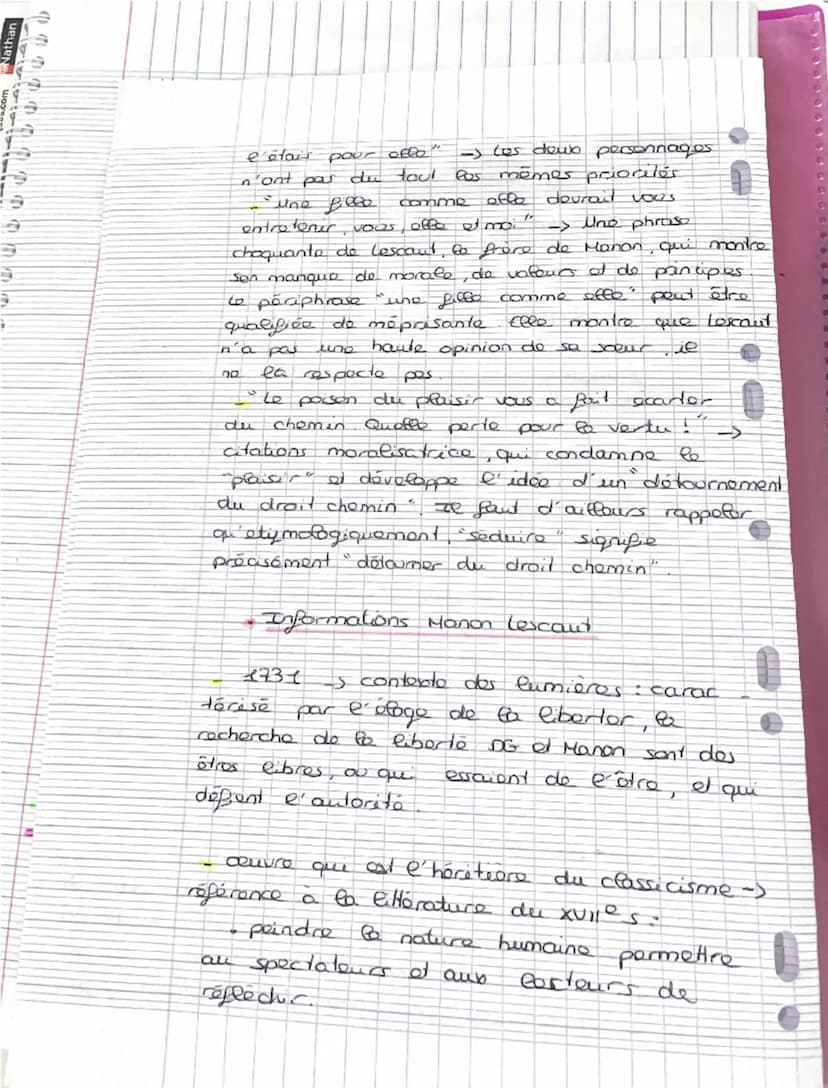 Nathan
l'était pour elle" -> Les deux personnages
n'ont pas du tout les mêmes priorités
- "une fille comme elle devrait vous
entretenir, vous, elle et moi" -> Une phrase
choquante de Lescaut, le frère de Manon, qui montre
son manque de morale, de valeurs et de principes.
Le périphrase "une fille comme elle" peut être
qualifiée de méprisante. Elle montre que Lescaut
n'a pas une haute opinion de sa soeur, il
ne la respecte pas.
- "Le poison du plaisir vous a fait écarter
du chemin. Quelle perte pour la vertu !" ->
citations moralisatrice, qui condamne le
"plaisir" et développe l'idée d'un "détournement
du droit chemin". Il faut d'ailleurs rappeler
qu'etymologiquement, "séduire" signifie
précisément "détourner du droit chemin".
• Informations Manon Lescaut
- 1731 -> contexte des lumières : carac -
térisé par l'éloge de la liberter, la
recherche de la liberté DG et Manon sont des
êtres libres, ou qui essaient de l'être, et qui
défient l'autorité.
- œuvre qui est l'héritière du classicisme ->
référence à la littérature du XVIIe s :
• peindre la nature humaine permettre
au spectateurs et aux lecteurs de
réfléchir.